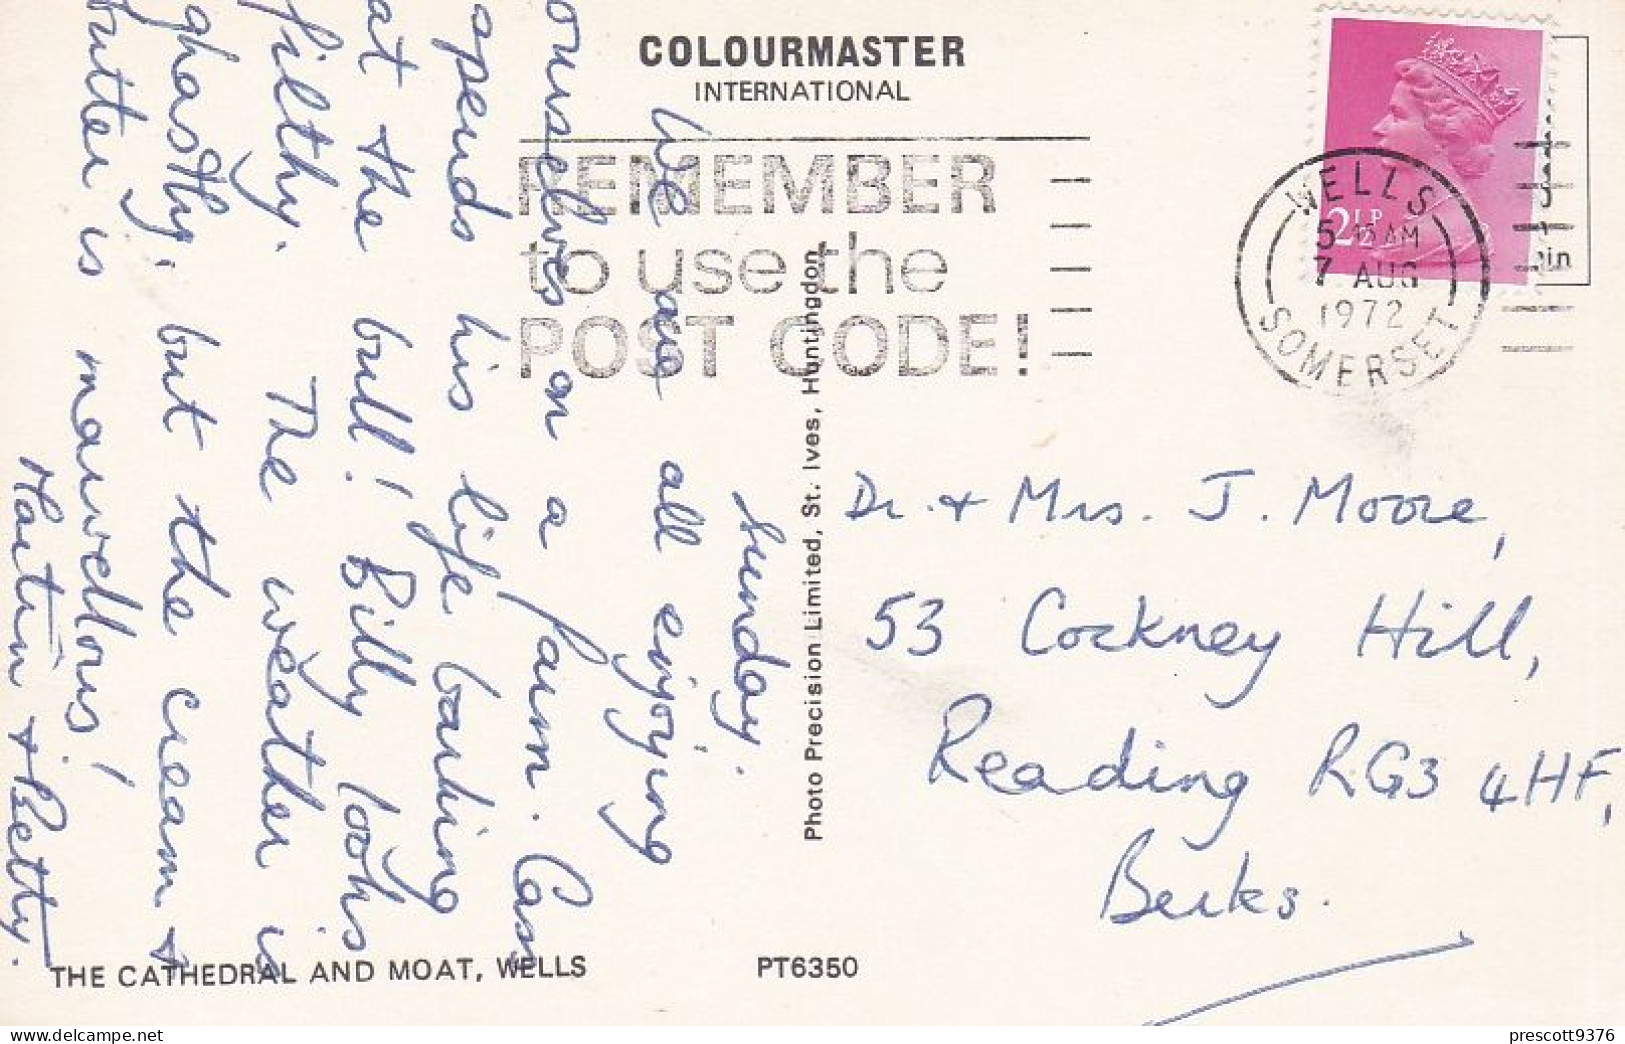 COLOURMASTER
INTERNATIONAL
REMEMBER
to use the
POST CODE!
WELLS
5 15 AM
7 AUG
1972
SOMERSET
2½P
in
Sunday.
We are all enjoying
ourselves on a farm. Cass
spends his life barking
at the bull! Billy looks
filthy. The weather is
ghastly, but the cream &
butter is marvellous!
Martin & Betty.
Photo Precision Limited, St. Ives, Huntingdon.
Dr. & Mrs. J. Moore,
53 Cockney Hill,
Reading RG3 4HF,
Berks.
THE CATHEDRAL AND MOAT, WELLS
PT6350
prescott9376